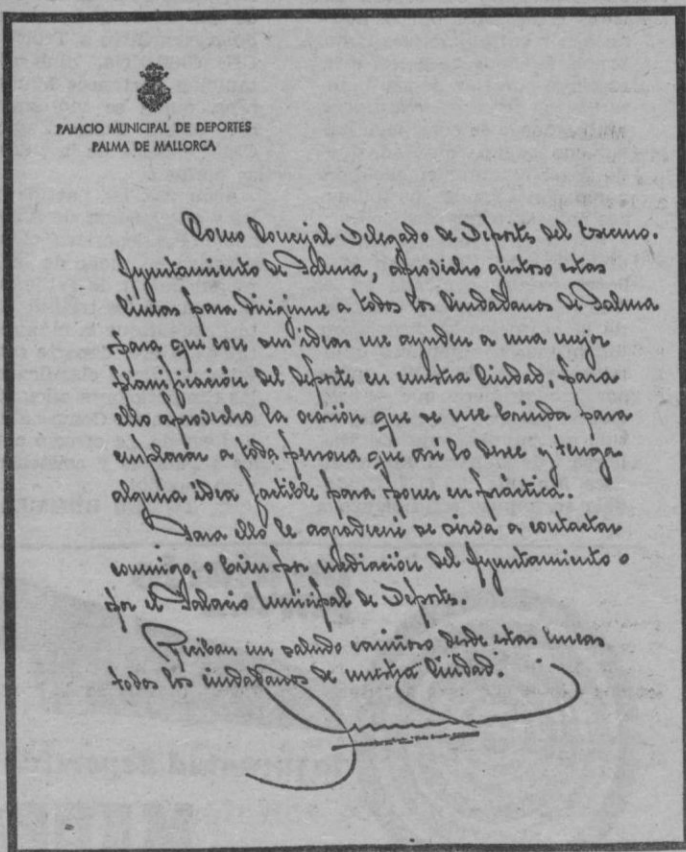 PALACIO MUNICIPAL DE DEPORTES
PALMA DE MALLORCA
Como Concejal Delegado de Deportes del Excmo.
Ayuntamiento de Palma, aprovecho gustoso estas
líneas para dirigirme a todos los Ciudadanos de Palma
para que con sus ideas me ayuden a una mejor
planificación del deporte en nuestra Ciudad, para
ello aprovecho la ocasión que se me brinda para
emplazar a toda persona que así lo desee y tenga
alguna idea factible para poner en práctica.
Para ello le agradeceré se sirva a contactar
conmigo, o bien por mediación del Ayuntamiento o
por el Palacio Municipal de Deportes.
Reciban un saludo cariñoso desde estas líneas
todos los ciudadanos de nuestra Ciudad.